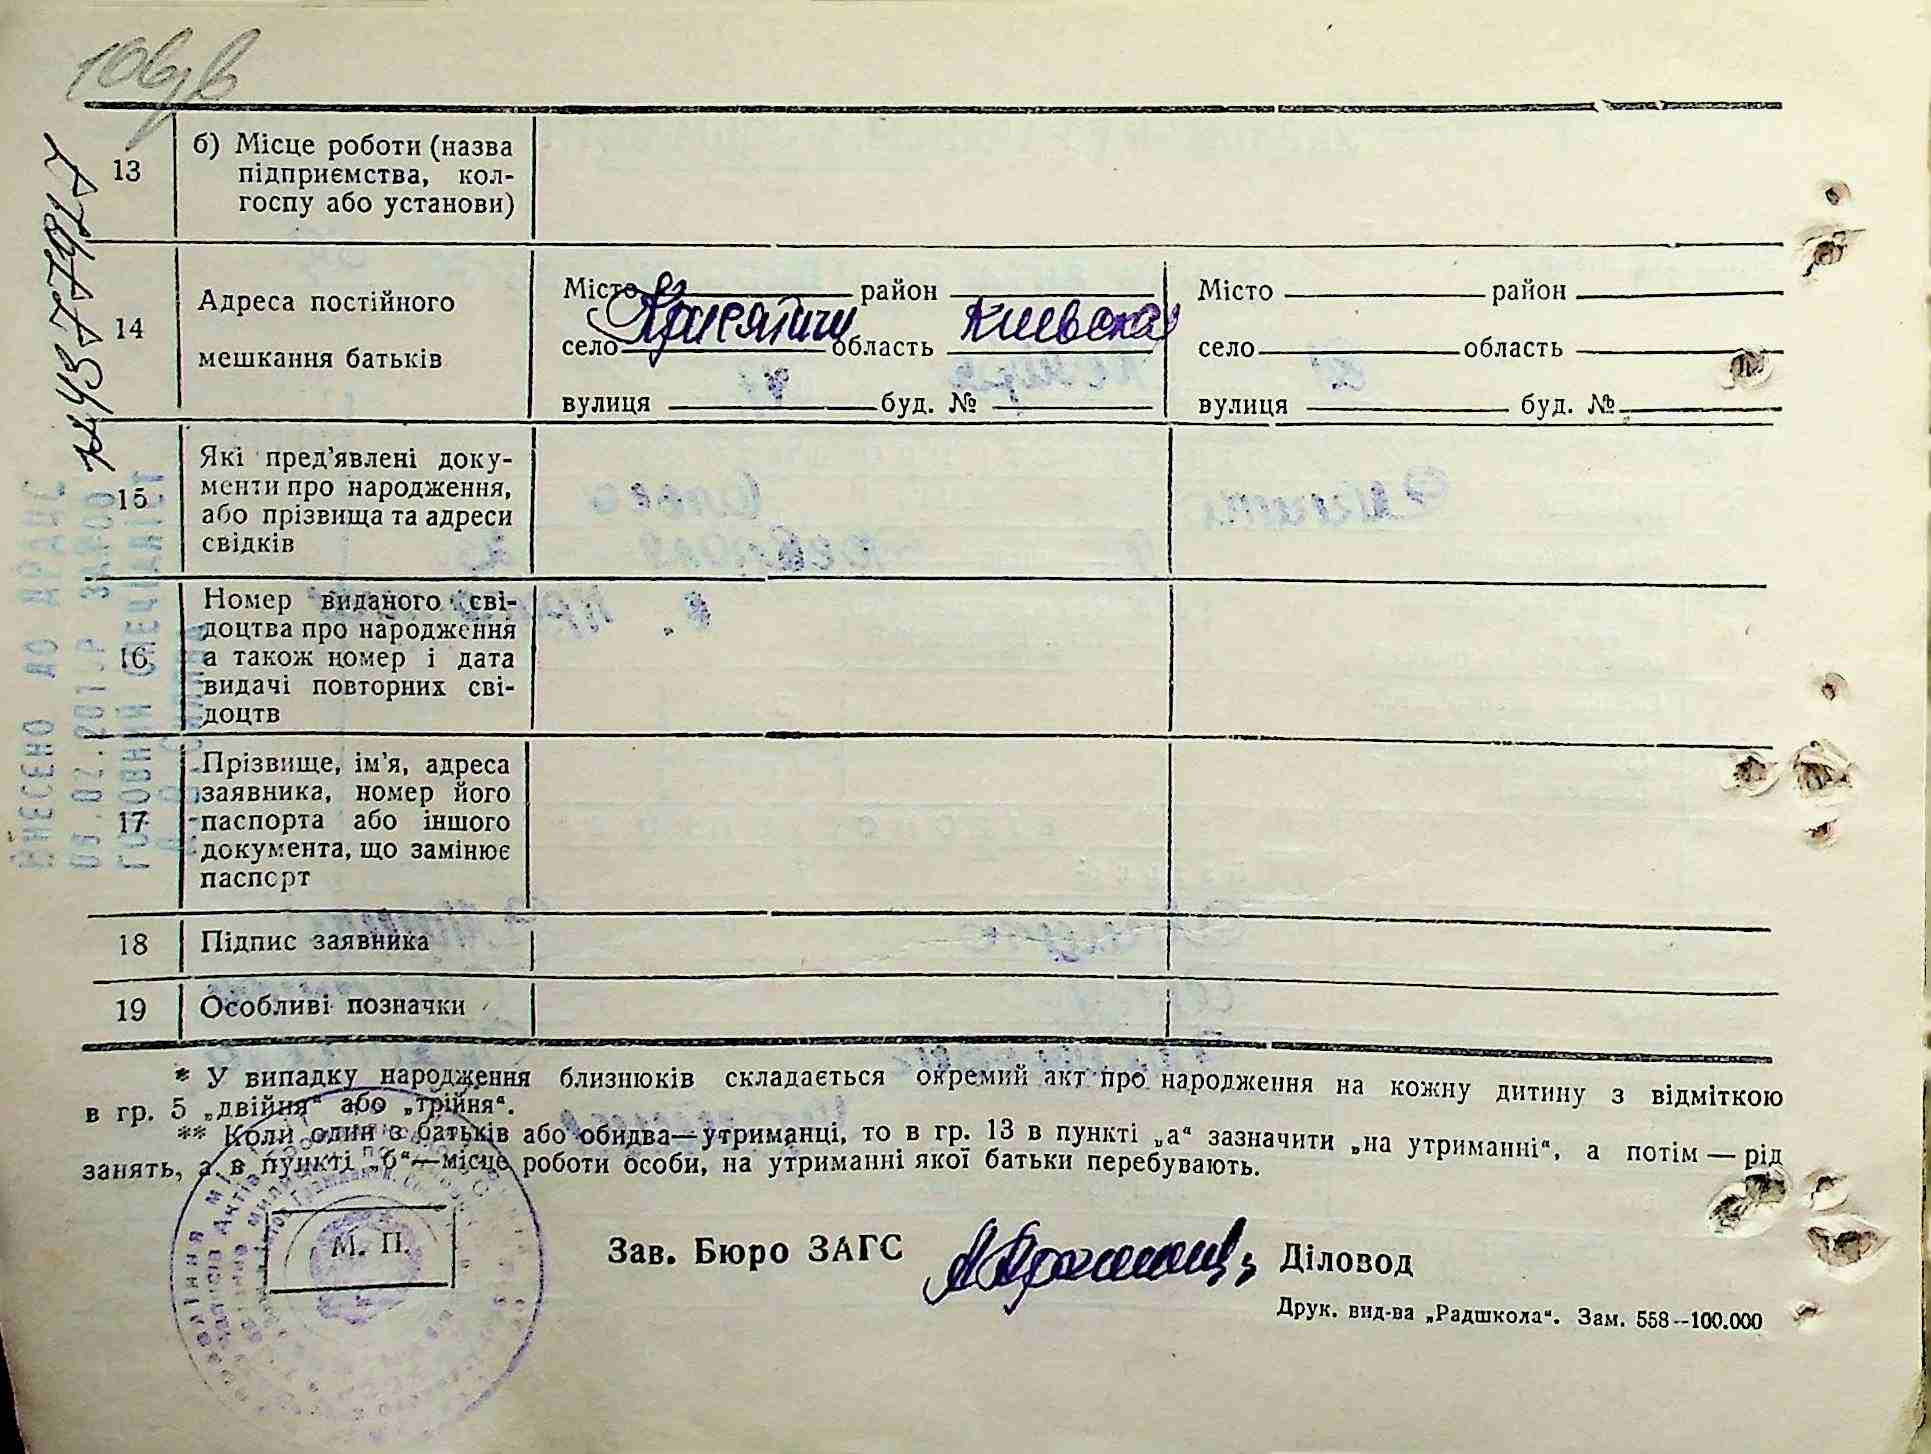 106/в
13
б) Місце роботи (назва
підприємства, кол-
госпу або установи)
14
Адреса постійного
мешкання батьків
Місто район
село Красятичи область Киевская
вулиця буд. №
Місто район
село область
вулиця буд. №
15
Які пред'явлені доку-
менти про народження,
або прізвища та адреси
свідків
16
Номер виданого сві-
доцтва про народження
а також номер і дата
видачі повторних сві-
доцтв
17
Прізвище, ім'я, адреса
заявника, номер його
паспорта або іншого
документа, що замінює
паспорт
18
Підпис заявника
19
Особливі позначки
ВНЕСЕНО ДО ДРАЦС
ГОЛОВНИЙ СПЕЦІАЛІСТ
* У випадку народження близнюків складається окремий акт про народження на кожну дитину з відміткою
в гр. 5 „двійня“ або „трійня“.
** Коли один з батьків або обидва—утриманці, то в гр. 13 в пункті „а“ зазначити „на утриманні“, а потім — рід
занять, а в пункті „б“—місце роботи особи, на утриманні якої батьки перебувають.
М. П.
Зав. Бюро ЗАГС
Діловод
Друк. вид-ва „Радшкола“. Зам. 558—100.000